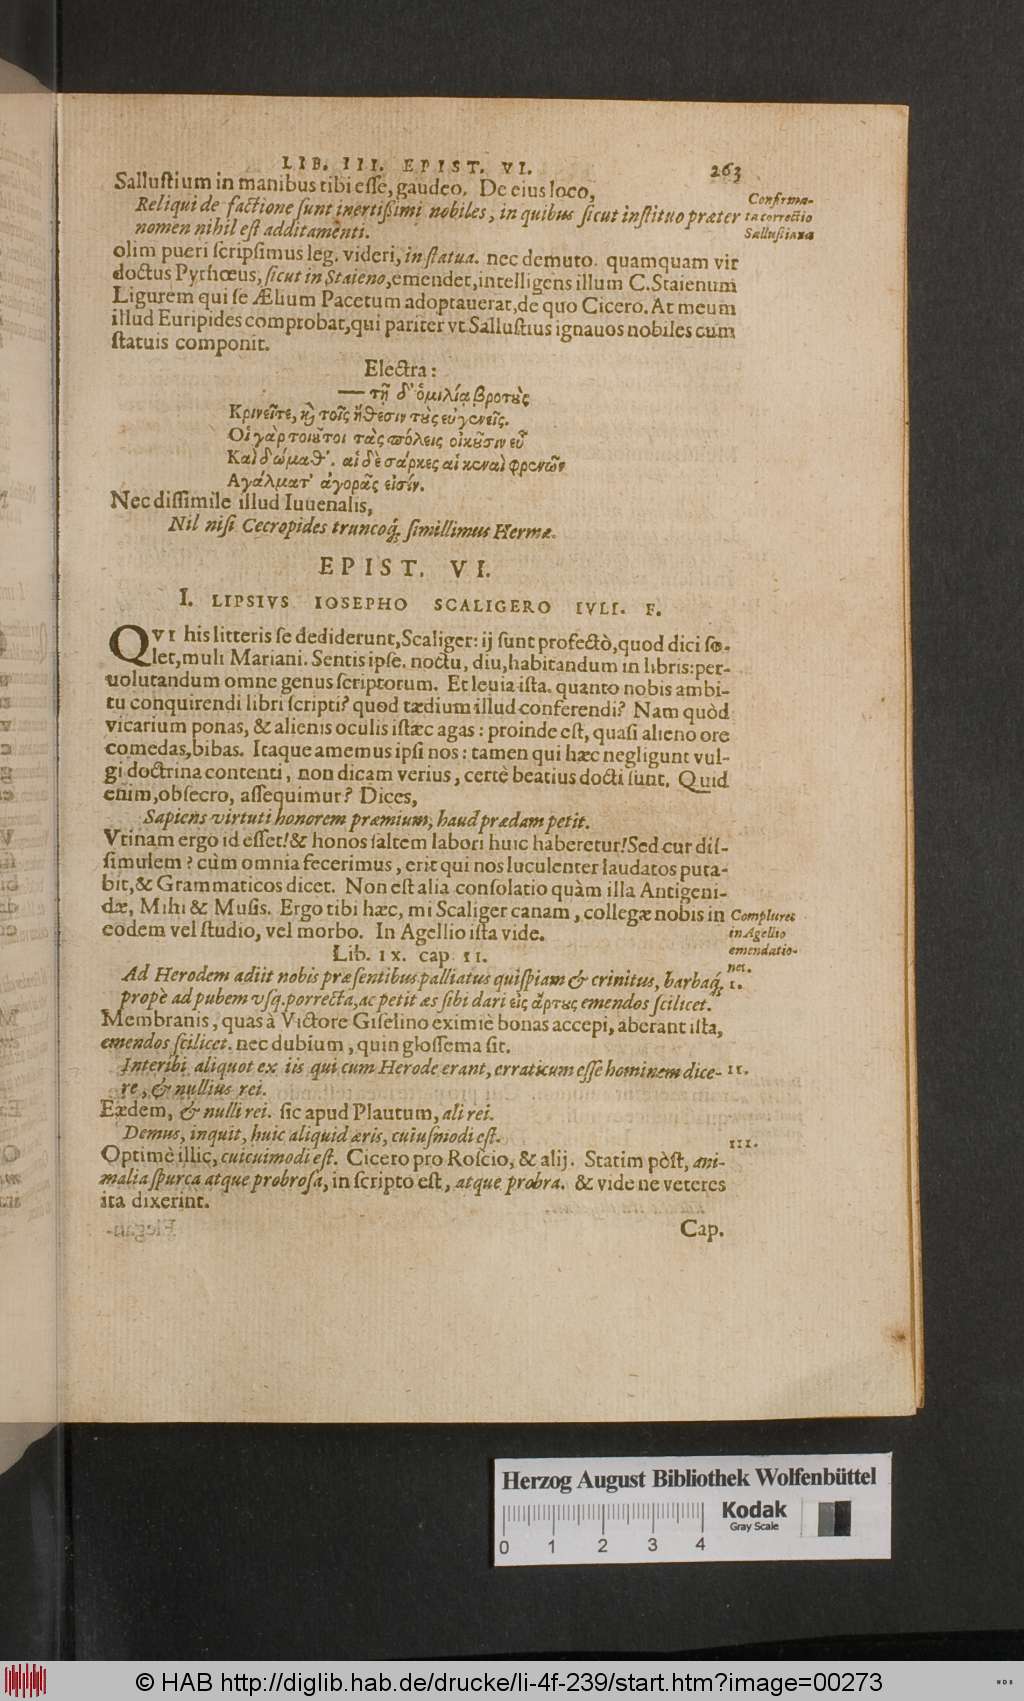 LIB. III. EPIST. VI. 263
Sallustium in manibus tibi esse, gaudeo. De eius loco,
Reliqui de factione sunt inertißimi nobiles, in quibus sicut instituo præter
nomen nihil est additamenti.
Confirma-
ta correctio
Sallustiana
olim pueri scripsimus leg. videri, in statua. nec demuto. quamquam vir
doctus Pythœus, sicut in Staieno, emendet, intelligens illum C. Staienum
Ligurem qui se Ælium Pacetum adoptauerat, de quo Cicero. At meum
illud Euripides comprobat, qui pariter vt Sallustius ignauos nobiles cum
statuis componit.
Electra:
— τῇ δ' ὁμιλίᾳ βροτοὺς
Κρινεῖτε, καὶ τοῖς ἤθεσιν τοὺς εὐγενεῖς.
Οἱ γὰρ τοιοῦτοι τὰς πόλεις οἰκοῦσιν εὖ
Καὶ δώμαθ'. αἱ δὲ σάρκες αἱ κεναὶ φρενῶν
Αγάλματ' ἀγορᾶς εἰσίν.
Nec dissimile illud Iuuenalis,
Nil nisi Cecropides truncoq́; simillimus Hermæ.
EPIST. VI.
I. LIPSIVS IOSEPHO SCALIGERO IVLI. F.
QVI his litteris se dediderunt, Scaliger: ij sunt profectò, quod dici so-
let, muli Mariani. Sentis ipse. noctu, diu, habitandum in libris: per-
uolutandum omne genus scriptorum. Et leuia ista. quanto nobis ambi-
tu conquirendi libri scripti? quod tædium illud conferendi? Nam quòd
vicarium ponas, & alienis oculis istæc agas: proinde est, quasi alieno ore
comedas, bibas. Itaque amemus ipsi nos: tamen qui hæc negligunt vul-
gi doctrina contenti, non dicam verius, certè beatius docti sunt. Quid
enim, obsecro, assequimur? Dices,
Sapiens virtuti honorem præmium, haud prædam petit.
Vtinam ergo id esset! & honos saltem labori huic haberetur! Sed cur dis-
simulem? cùm omnia fecerimus, erit qui nos luculenter laudatos puta-
bit, & Grammaticos dicet. Non est alia consolatio quàm illa Antigeni-
dæ, Mihi & Musis. Ergo tibi hæc, mi Scaliger canam, collegæ nobis in
eodem vel studio, vel morbo. In Agellio ista vide.
Complures
in Agellio
emendatio-
nes.
Lib. IX. cap II.
Ad Herodem adiit nobis præsentibus palliatus quispiam & crinitus, barbaq́;
propè ad pubem vsq. porrecta, ac petit æs sibi dari εἰς ἄρτους emendos scilicet.
I.
Membranis, quas à Victore Giselino eximiè bonas accepi, aberant ista,
emendos scilicet. nec dubium, quin glossema sit.
Interibi aliquot ex iis qui cum Herode erant, erraticum esse hominem dice-
re, & nullius rei.
II.
Eædem, & nulli rei. sic apud Plautum, ali rei.
Demus, inquit, huic aliquid æris, cuiusmodi est.
III.
Optimè illic, cuicuimodi est. Cicero pro Roscio, & alij. Statim pòst, ani-
malia spurca atque probrosa, in scripto est, atque probra. & vide ne veteres
ita dixerint.
Cap.
Herzog August Bibliothek Wolfenbüttel
Kodak
Gray Scale
0 1 2 3 4
© HAB http://diglib.hab.de/drucke/li-4f-239/start.htm?image=00273